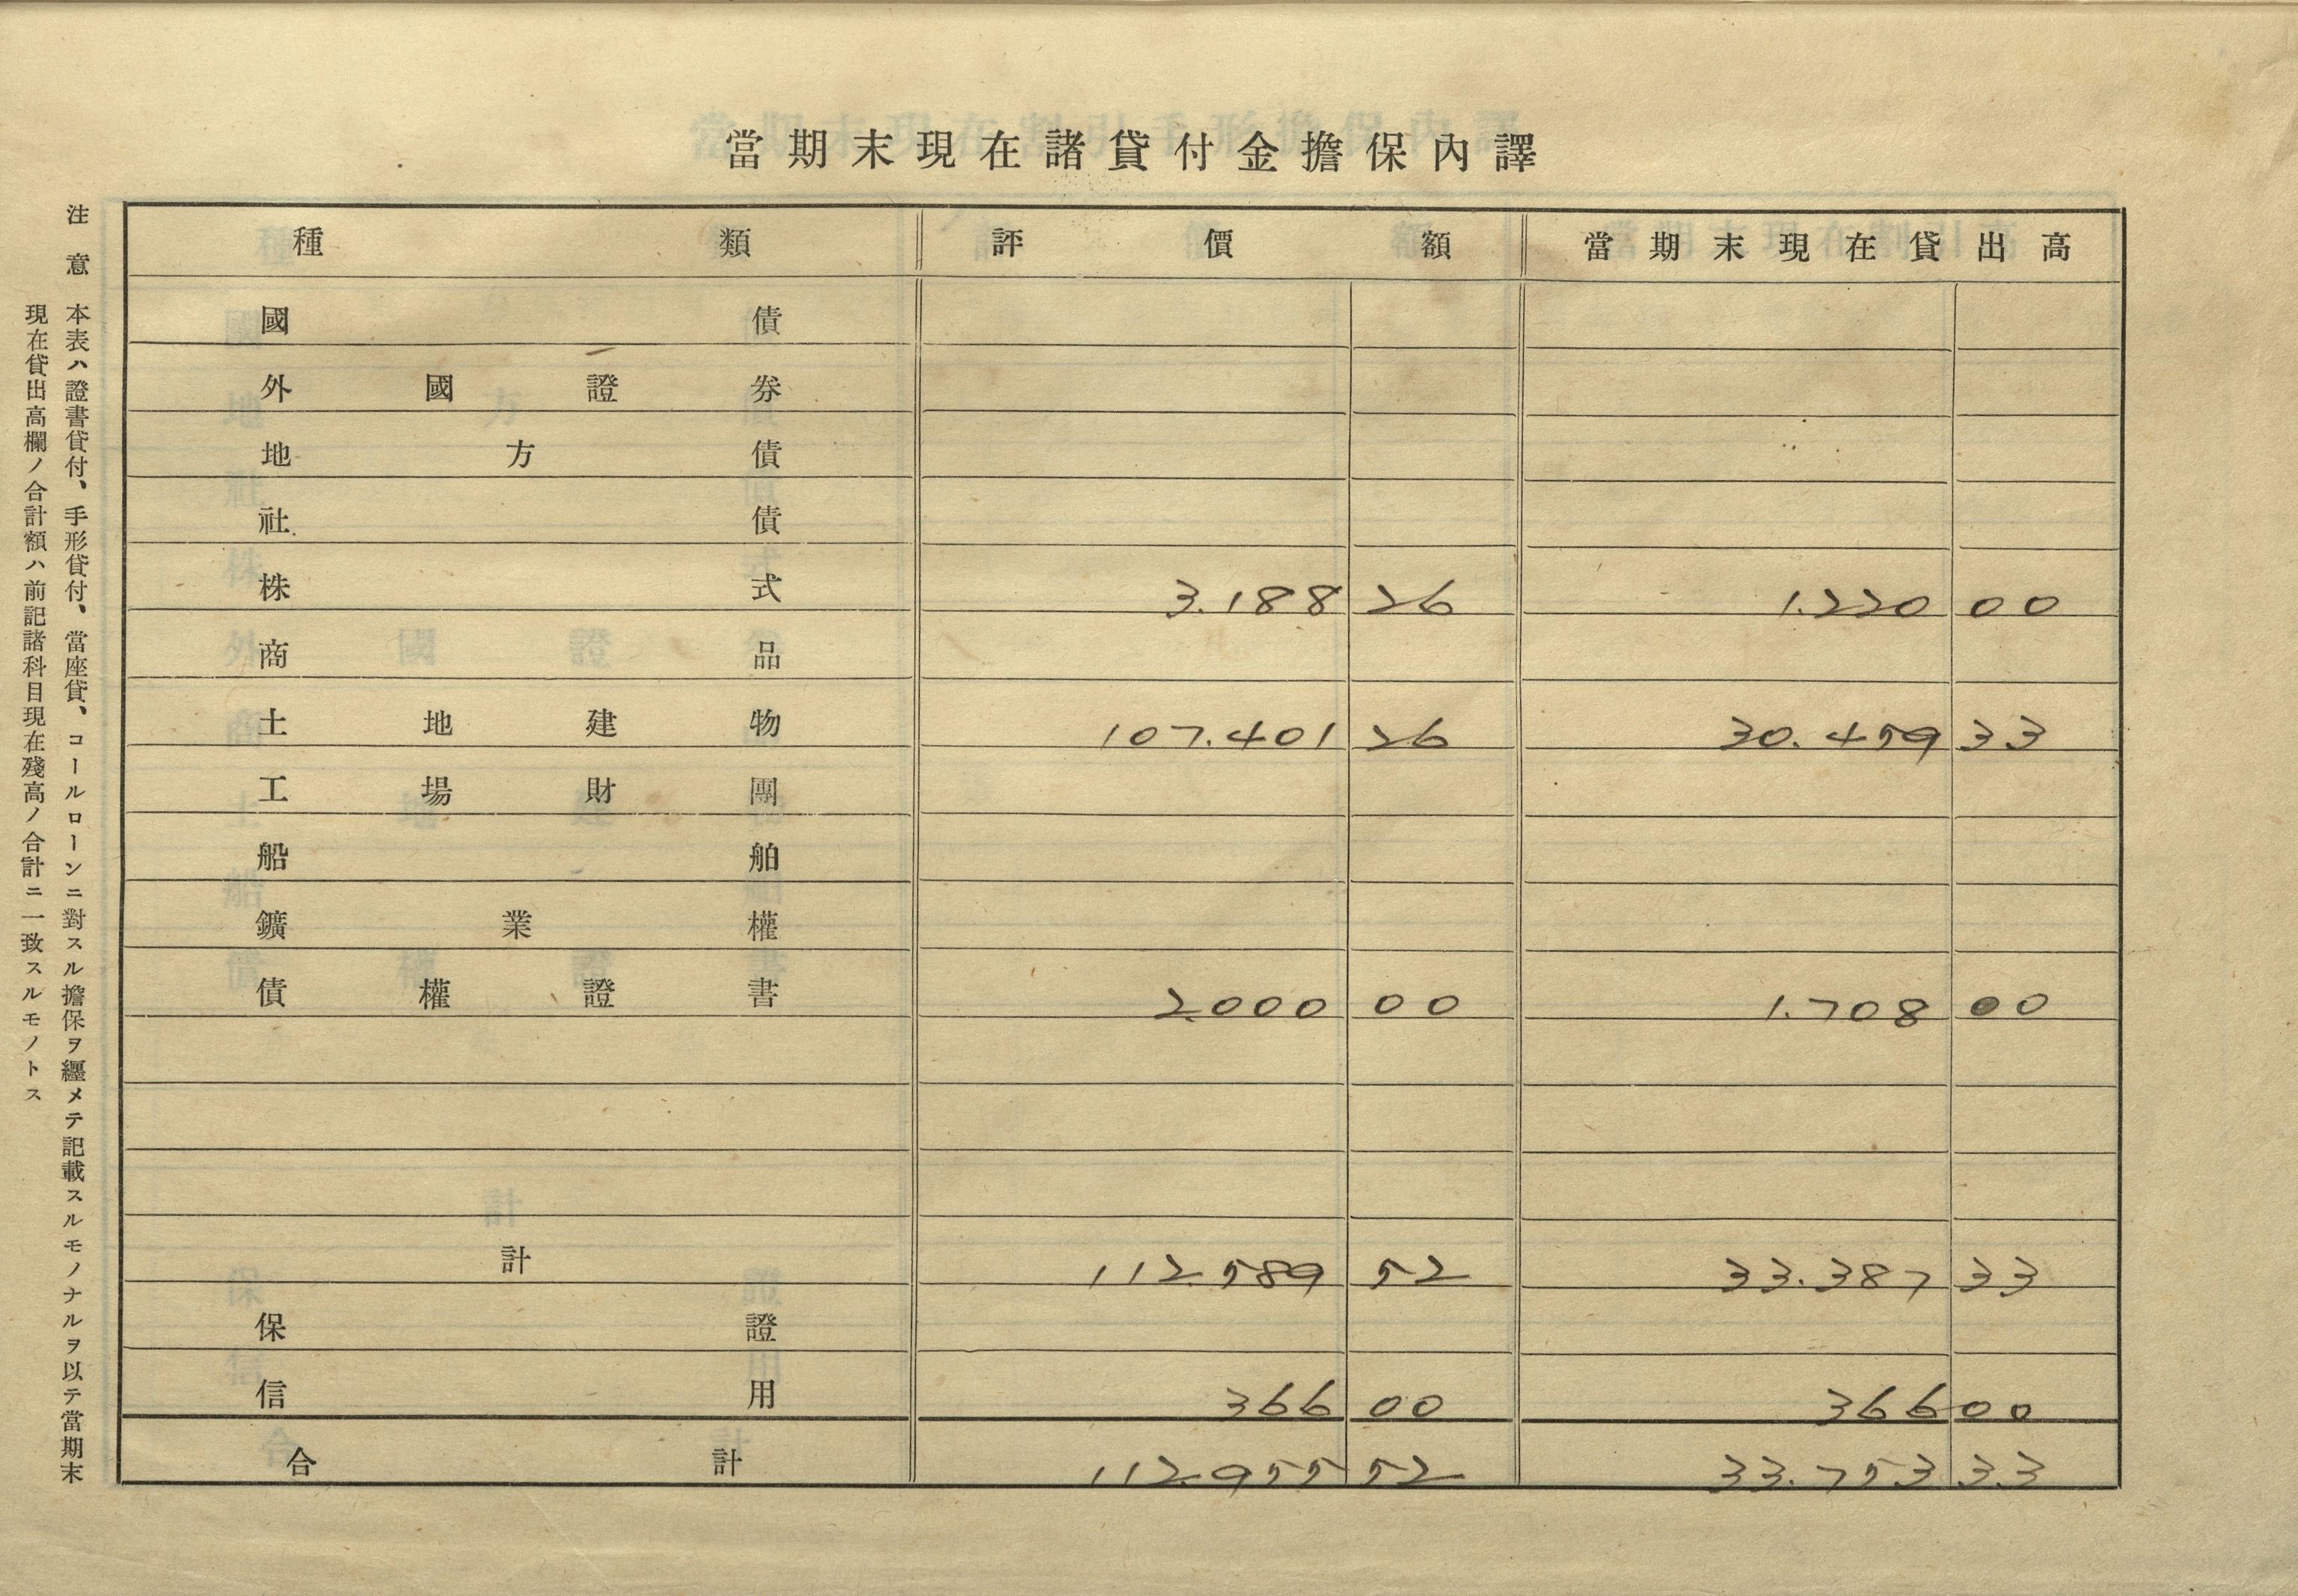 當期末現在諸貸付金擔保內譯
種類 評價額 當期末現在貸出高
國債
外國證券
地方債
社債
株式 3.188 26 1.220 00
商品
土地建物 107.401 26 30.459 33
工場財團
船舶
鑛業權
債權證書 2.000 00 1.708 00
計 112.589 52 33.387 33
保證
信用 366 00 366 00
合計 112.955 52 33.753 33
注意 本表ハ證書貸付、手形貸付、當座貸、コールローンニ對スル擔保ヲ纒メテ記載スルモノナルヲ以テ當期末
現在貸出高欄ノ合計額ハ前記諸科目現在殘高ノ合計ニ一致スルモノトス